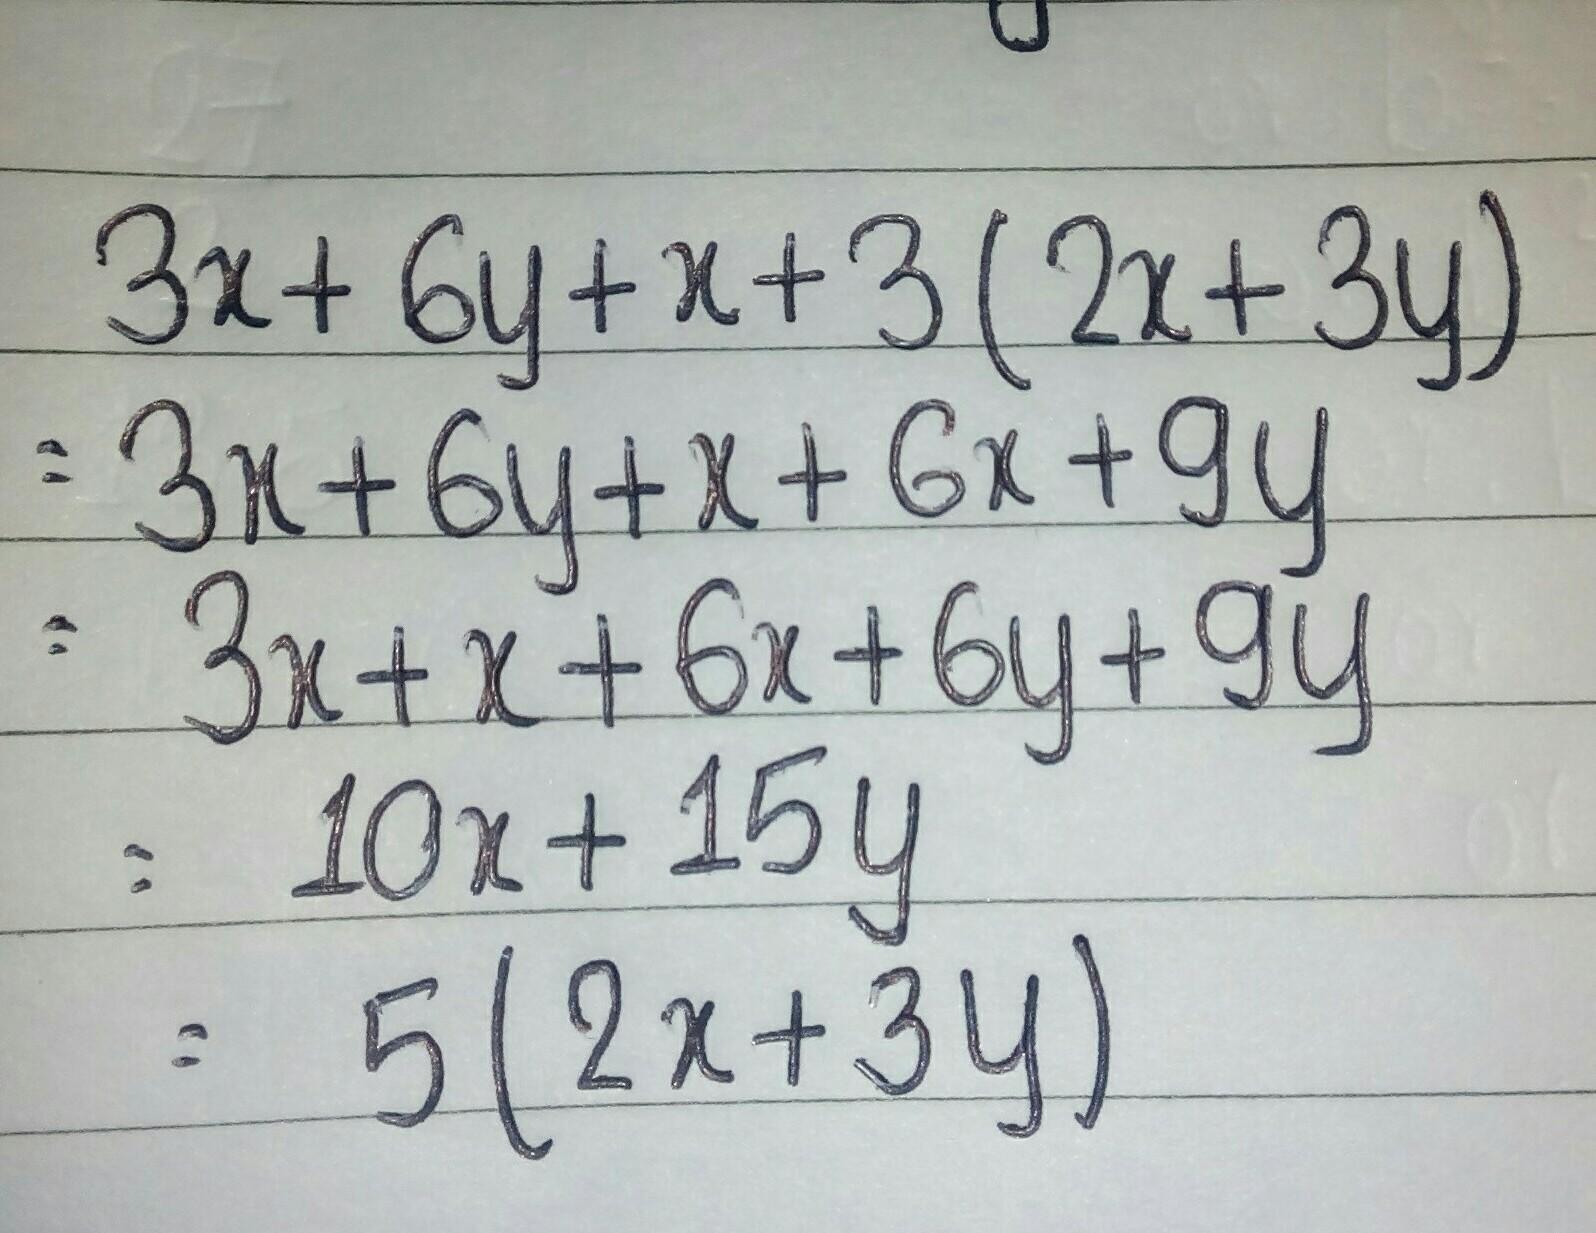 3x + 6y + x + 3(2x + 3y)
= 3x + 6y + x + 6x + 9y
= 3x + x + 6x + 6y + 9y
= 10x + 15y
= 5(2x + 3y)